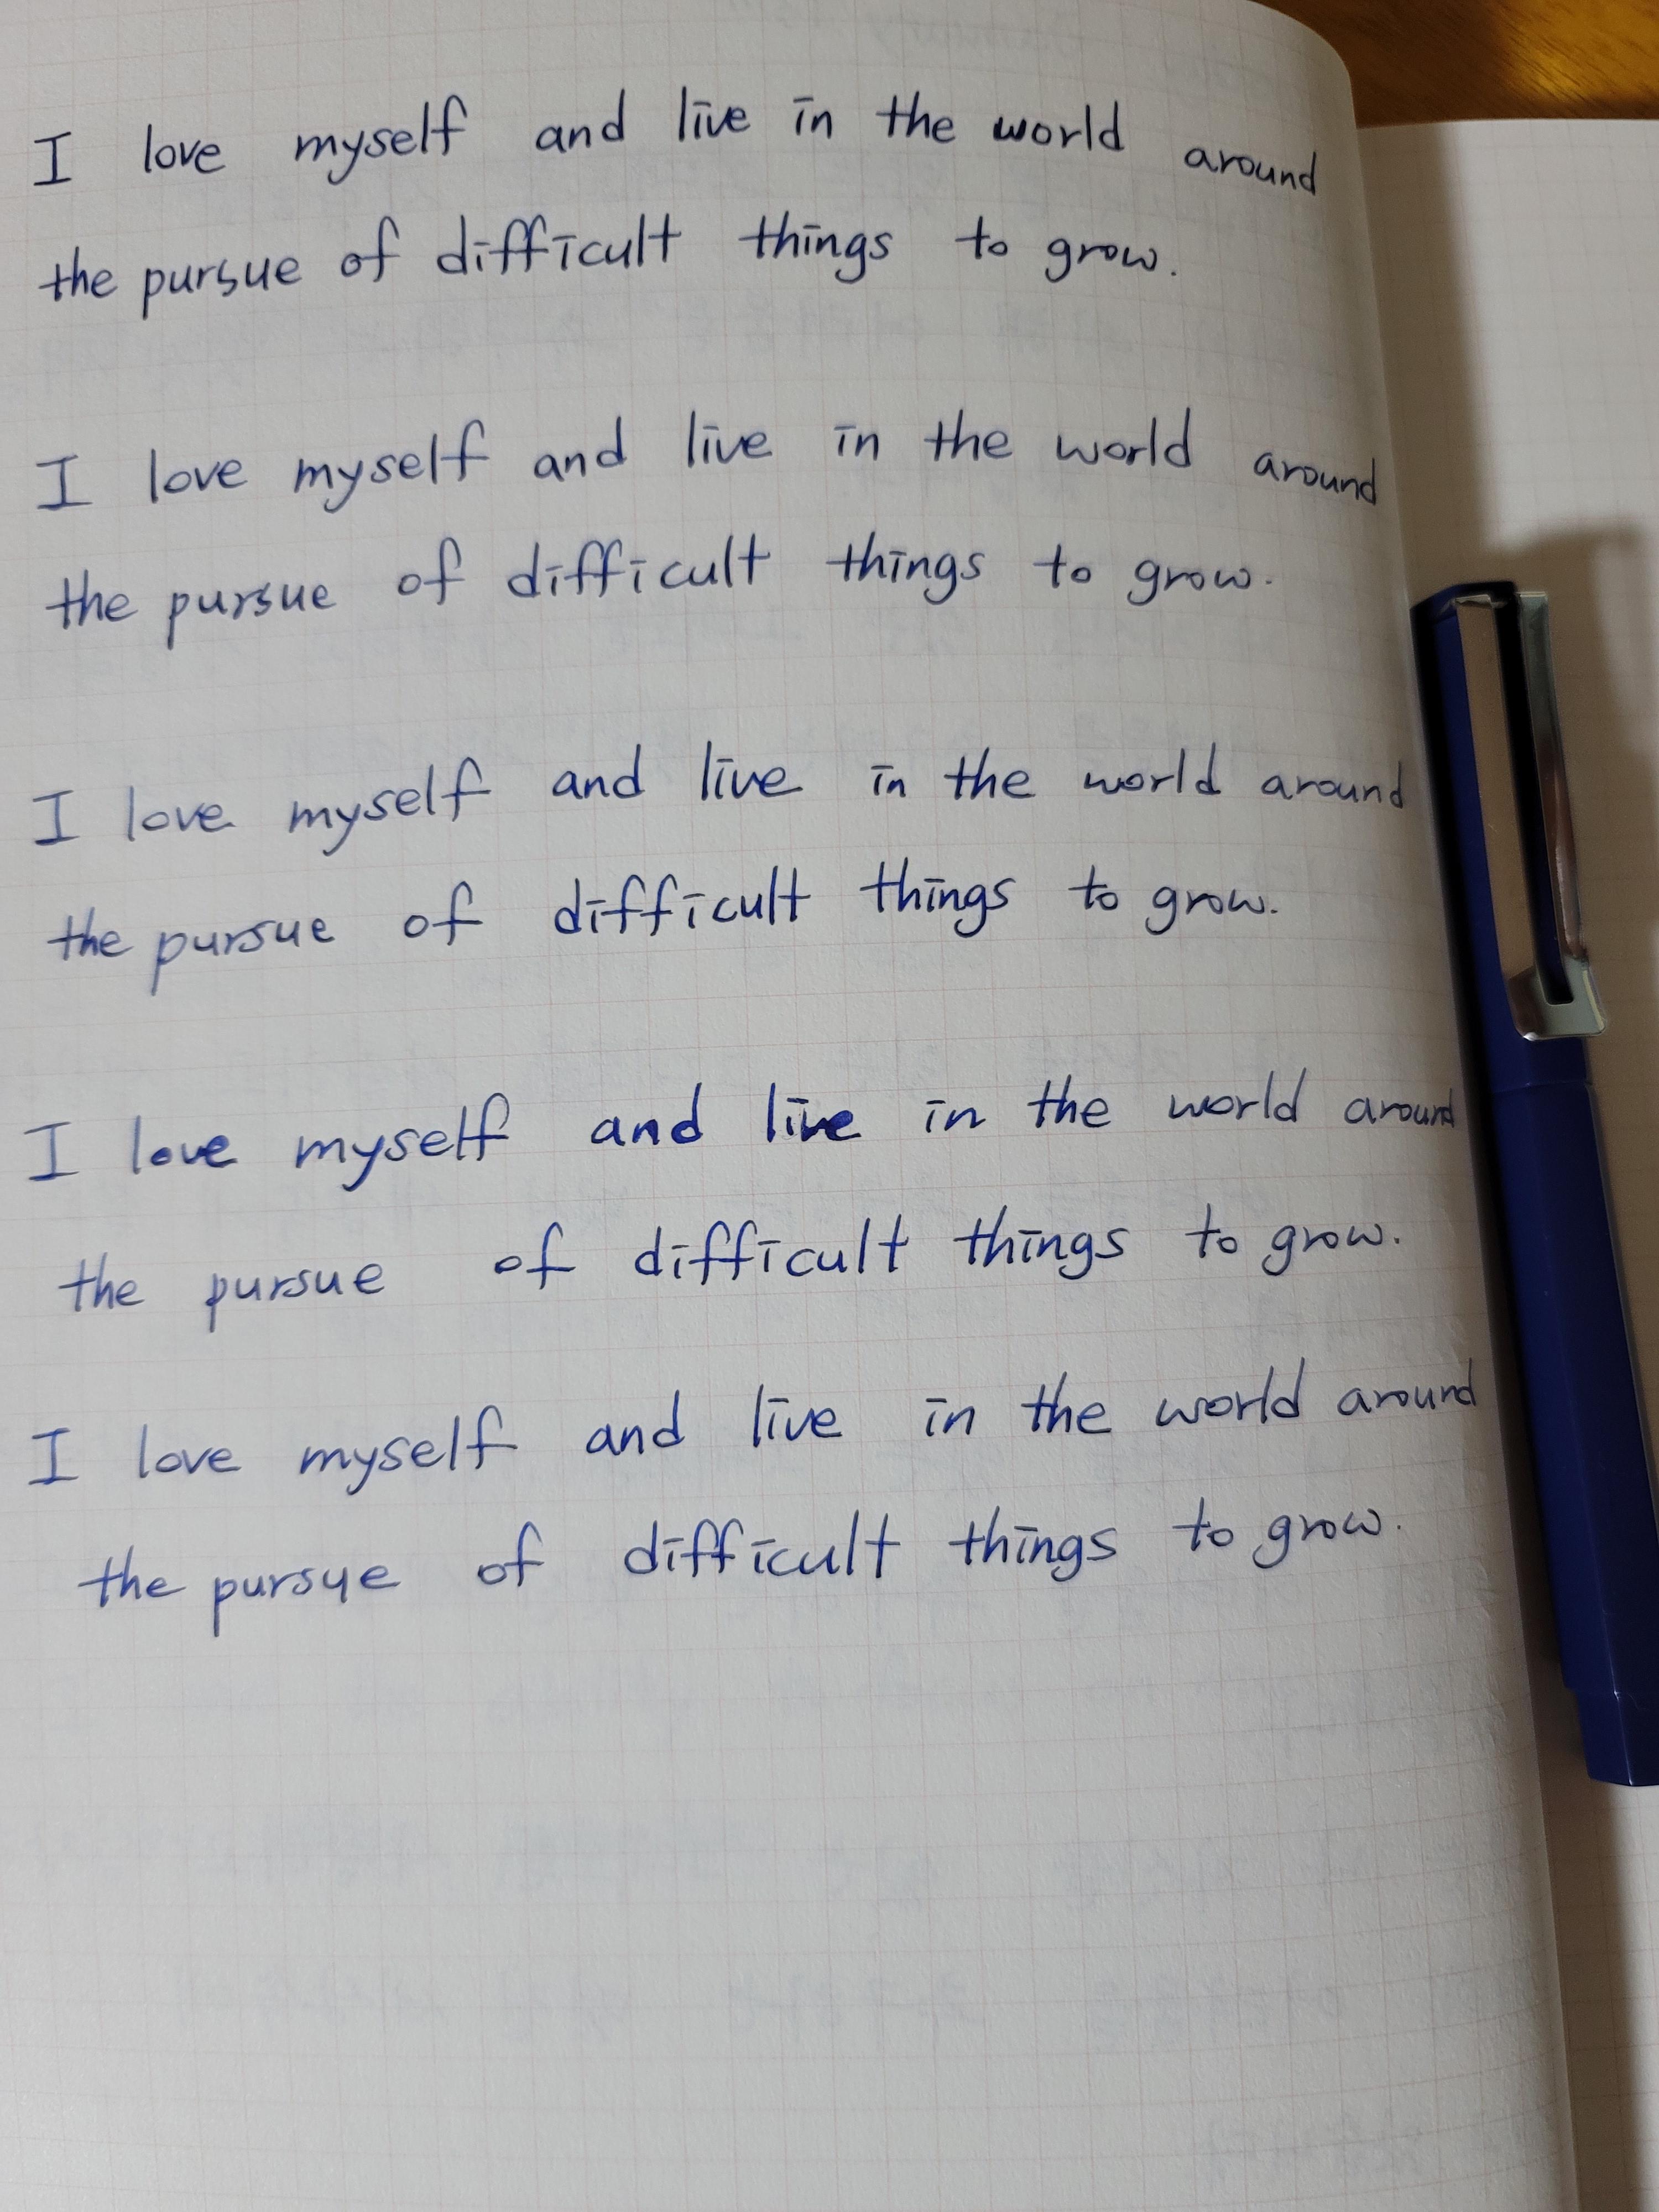 I love myself and live in the world around
the pursue of difficult things to grow.
I love myself and live in the world around
the pursue of difficult things to grow.
I love myself and live in the world around
the pursue of difficult things to grow.
I love myself and live in the world around
the pursue of difficult things to grow.
I love myself and live in the world around
the pursue of difficult things to grow.